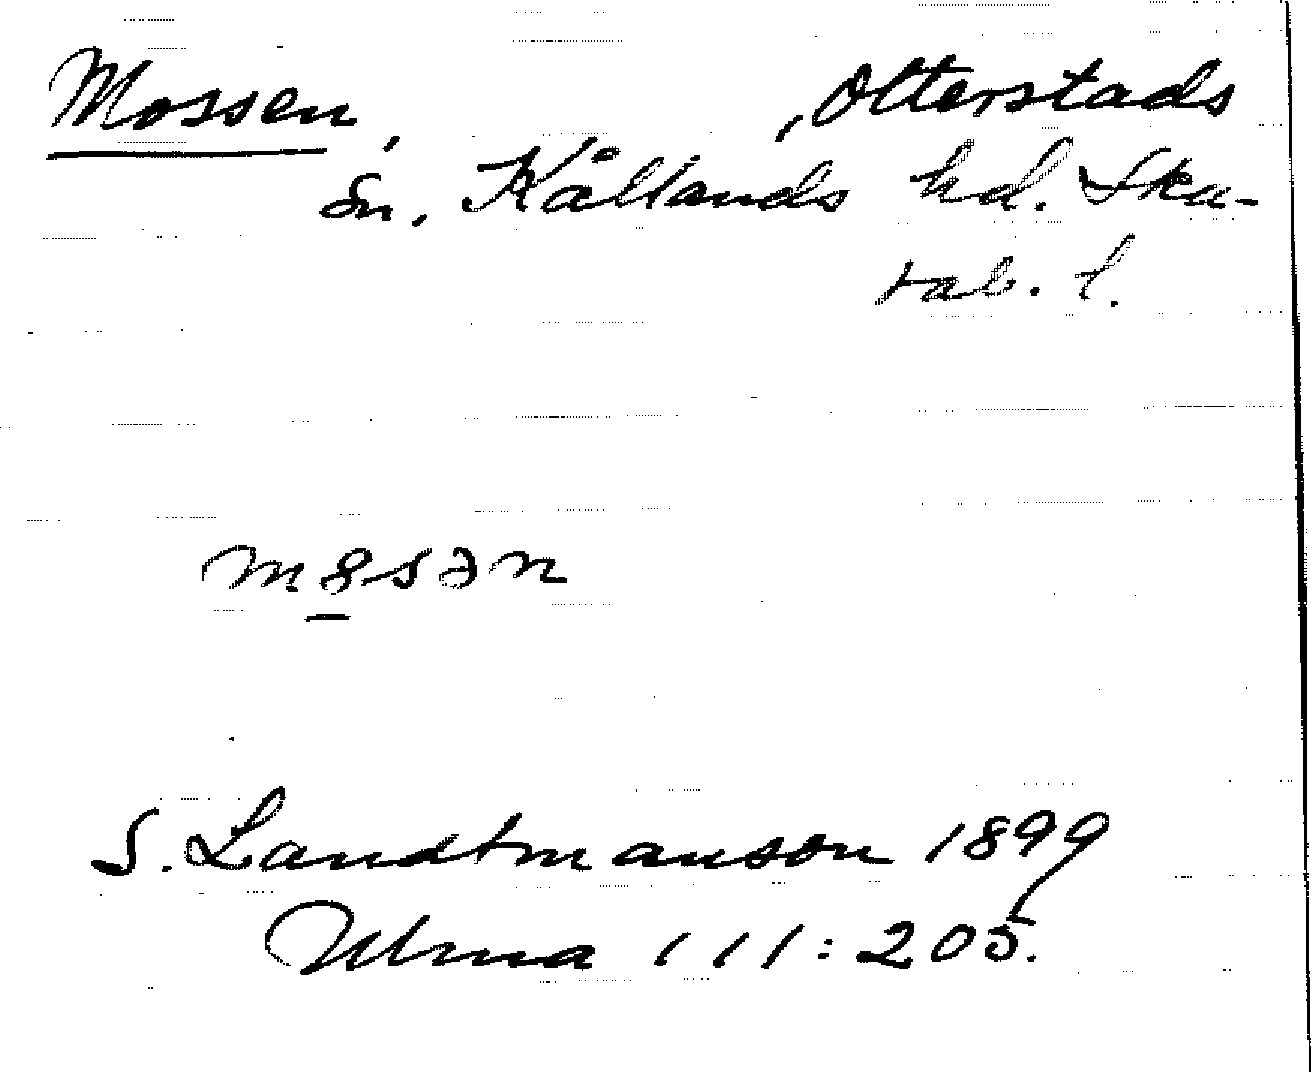 Mossen, , Otterstads
sn. Kållands hd. Ska-
rab. l.
m8sən
S. Landtmanson 1899
Ulma 111:205.